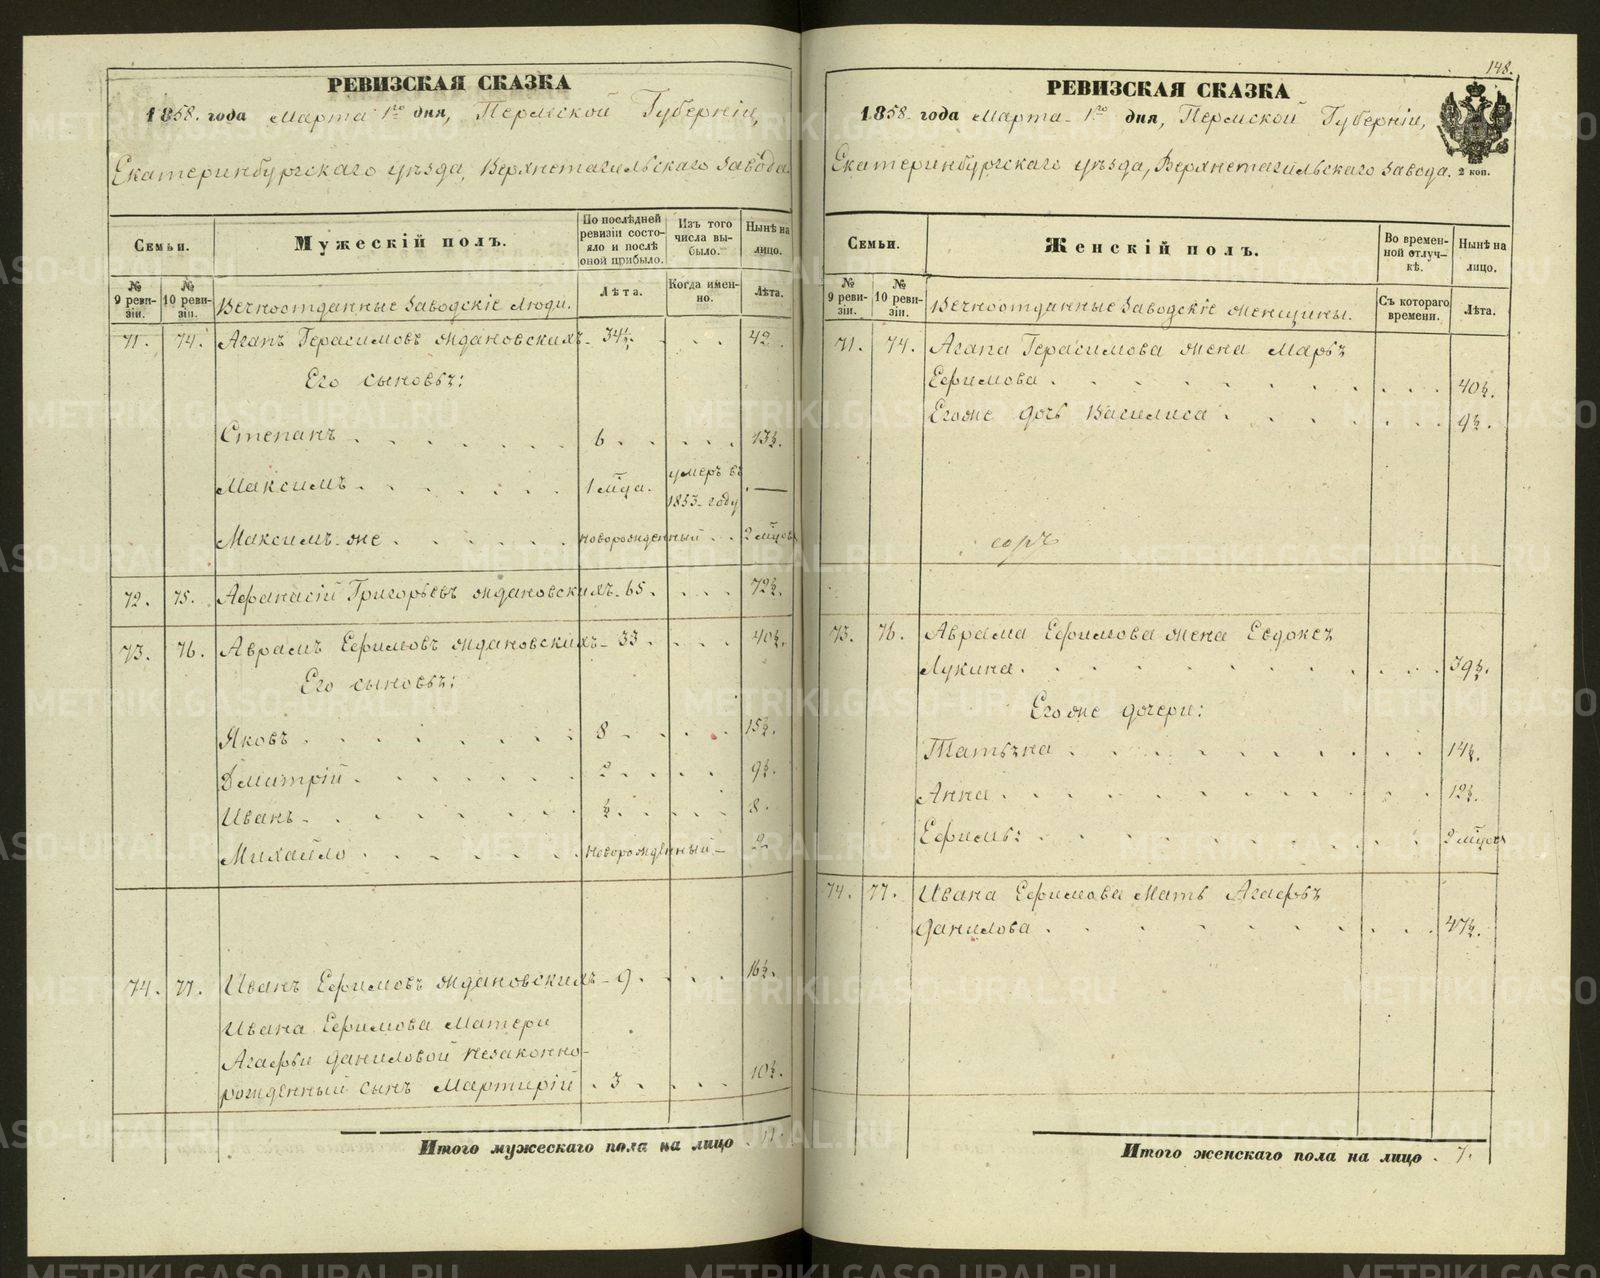 РЕВИЗСКАЯ СКАЗКА
1858. года Марта 1го дня, Пермской Губерніи,
Екатеринбургскаго уѣзда, Верхнетагильскаго Завода.
Семьи.
Мужескій полъ.
По послѣдней ревизіи состояло и послѣ оной прибыло.
Изъ того числа выбыло.
Нынѣ на лицо.
№ 9 ревизіи.
№ 10 ревизіи.
Вечноотданные Заводскіе люди.
Лѣта.
Когда именно.
Лѣта.
71. 74. Агапъ Герасимовъ Ждановскихъ 34½. 42
Его сыновья:
Степанъ 6 13½.
Максимъ 1 м̃ца. умеръ въ 1853 году —
Максимъ же новорожденный 2 м̃цовъ
72. 75. Афанасій Григорьевъ Ждановскихъ 65. 72½.
73. 76. Аврамъ Ефимовъ Ждановскихъ 33 40½.
Его сыновья:
Яковъ 8 15½.
Дмитрій 2 9½.
Иванъ ½ 8.
Михайло новорожденный 2
74. 77. Иванъ Ефимовъ Ждановскихъ 9. 16½.
Ивана Ефимова Матери
Агафьи Даниловой незаконно-
рожденный сынъ Мартирій 3 10½.
Итого мужескаго пола на лицо 11.
148.
РЕВИЗСКАЯ СКАЗКА
1858. года Марта 1го дня, Пермской Губерніи,
Екатеринбургскаго уѣзда, Верхнетагильскаго Завода.
2 коп.
Семьи.
Женскій полъ.
Во временной отлучкѣ.
Нынѣ на лицо.
№ 9 ревизіи.
№ 10 ревизіи.
Вечноотданные Заводскіе женщины.
Съ котораго времени.
Лѣта.
71. 74. Агапа Герасимова жена Марья
Ефимова 40½.
Егоже дочь Василиса 9½.
73. 76. Аврама Ефимова жена Евдокея
Лукина 39½.
Егоже дочери:
Татьяна 14½.
Анна 12½.
Ефимья 2 м̃цовъ
74. 77. Ивана Ефимова Мать Агафья
Данилова 47½.
Итого женскаго пола на лицо 7.
METRIKI.GASO-URAL.RU